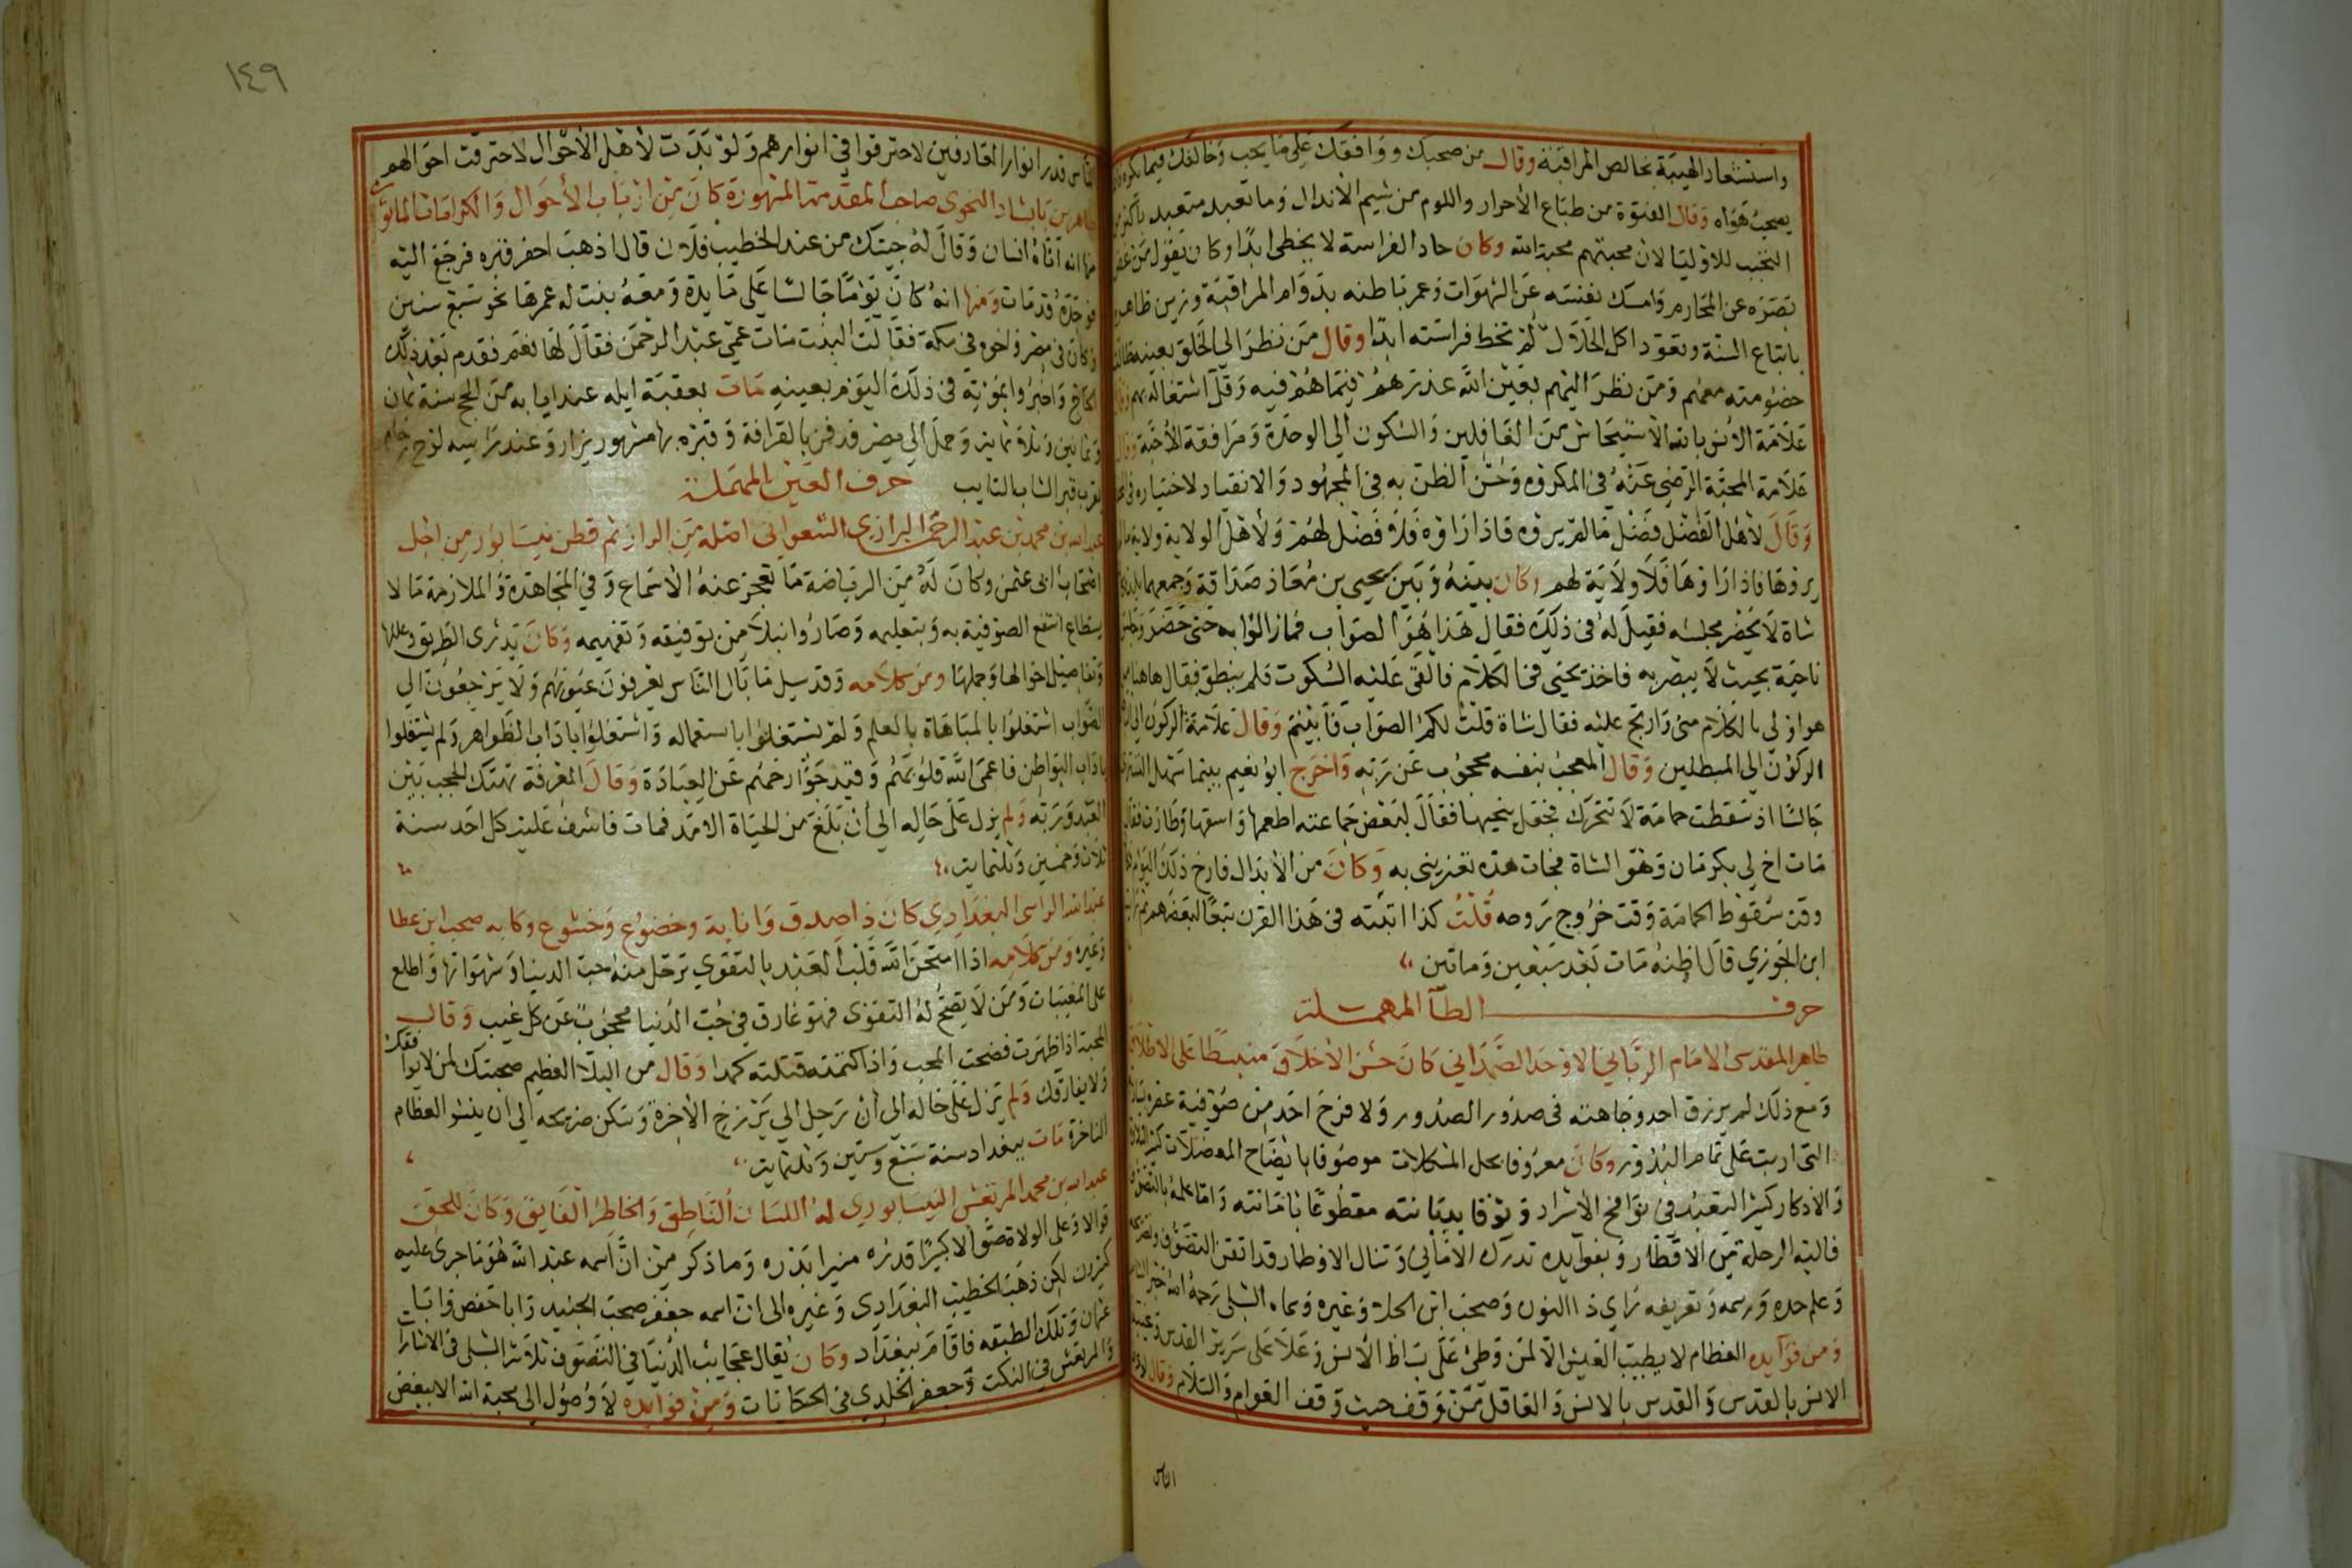 واستشعار الهيبة بخالص المراقبة وقال من صحبك ووافقك على ما يحب وخالفك فيما يكره
يصحب هواه وقال الفتوة من طباع الأحرار واللوم من شيم الأنذال وما تعبد متعبد بأكثر من
التحبب للاوليا لان محبتهم محبة الله وكان حاد الفراسة لا يخطى ابدا وكان يقول من غض
بصره عن المحارم وامسك نفسه عن الشهوات وعمر باطنه بدوام المراقبة وزين ظاهره
باتباع السنة وتعود اكل الحلال لم تخط فراسته ابدا وقال من نظر الى الخلق بعينه طالت
خصومته معهم ومن نظر اليهم بعين الله عذرهم فيما هم فيه وقل اشتغاله بهم وقال
علامة الأنس بالله الاستيحاش من الغافلين والسكون الى الوحدة ومرافقة الأحبة وقال
علامة المحبة الرضى عنه في المكروه وحسن الظن به في المجهود والانقياد لاختياره في
وقال لأهل الفضل فضل مالم يروه فاذا راوه فلا فضل لهم ولأهل الولاية ولاية مالم
يروها فاذا راوها فلا ولاية لهم وكان بينه وبين يحيى بن معاذ صداقة وجمعهما بلد
شاة لا يحضر مجلسه فقيل له في ذلك فقال هذا هو الصواب فمازالوا به حتى حضر وجلس
ناحية بحيث لا يبصر به فاخذ يحيى في الكلام فالقى عليه السكوت فلم ينطق فقال هاهنا من
هو اولى بالكلام منى وارتج عليه فقال شاة قلت لكم الصواب فأبيتم وقال علامة الركون الى
الركون الى المبطلين وقال المعجب بنفسه محجوب عن ربه واخرج ابو نعيم بينما سهل التستري
جالسا اذ سقطت حمامة لا تتحرك فجعل ينحيها فقال لبعض جماعته اطعمها واسقها وطارت فقال
مات اخ لي بكرمان وهو الشاة فجات هذه تعزينى به وكان من الأبدال فارخ ذلك اليوم
وقت سقوط الحمامة وقت خروج روحه قلت كذا اثبته في هذا القرن تبعا لبعضهم
ابن الجوزي قال اظنه مات بعد سبعين وماتين
حرف الطآ المهملة
طاهر المقدسى الامام الرباني الاوحد الصمداني كان حسن الأخلاق منبسطا على الاطلاق
ومع ذلك لم يرزق احد وجاهته في صدور الصدور ولا فرح احد من صوفية عصره
التى اربت على تمام البدور وكان معروفا بحل المشكلات موصوفا بايضاح المعضلات كثير
والاذكار كثير التعبد في نوافح الأسرار وتوقا بديانته مقطوعا بامانته واما علمه بالتصوف
فاليه الرحلة من الاقطار وبفوايده تدرك الأماني وتنال الاوطار قد اتقن التصوف
وعلم حده ورسمه وتعريفه راي ذا النون وصحب ابن الجلا وغيره وسماه الشبلى رحمه الله حبر الشام
ومن فوآيده العظام لا يطيب العيش الا لمن وطئ على بساط الأنس وعلا على سرير القدس وغيبه
الانس بالقدس والقدس بالانس والعاقل من وقف حيث وقف العوام والسلام وقال
الناس
١٤٩
الناس قدر انوار العارفين لاحترقوا في انوارهم ولو بدت لأهل الأحوال لاحترقت احوالهم
طاهر بن بابشاذ النحوى صاحب المقدمة المشهورة كان من ارباب الأحوال والكرامات
منها انه اتاه انسان وقال له جيتك من عند الخطيب فلان قال اذهب احفر قبره فرجع اليه
فوجده قد مات ومنها انه كان يوما جالسا على مايدة ومعه بنت له عمرها نحو سبع سنين
وكان في مصر واخوه في مكة فقالت البنت مات عمي عبد الرحمن فقال لها نعم فقدم بعد ذلك
الحاج واخبروا بموته في ذلك اليوم بعينه مات بعقبة ايله عند ايابه من الحج سنة ثمان
وثمانين وثلاثماية وحمل الى مصر فدفن بالقرافة وقبره بها مشهور يزار وعند راسه لوح رخام
بقرب قبر الشاب التايب حرف العين المهملة
عبد الله بن محمد بن عبد الرحمن الرازي الشعراني اصله من الراز ثم قطن نيسابور من اجل
اصحاب ابى عثمن وكان له من الرياضة ما تعجز عنه الأسماع وفي المجاهدة والملازمة ما لا
يستطاع انتفع الصوفية به وبتعليمه وصاروا نبلا من توفيقه وتفهيمه وكان يدرى الطريق وعللها
وتفاصيل احوالها وجملها ومن كلامه وقد سيل ما بال الناس يعرفون عيوبهم ولا يرجعون الى
الصواب اشتغلوا بالمباهاة بالعلم ولم يشتغلوا باستعماله واشتغلوا باداب الظواهر ولم يشتغلوا
باداب البواطن فاعمى الله قلوبهم وقيد جوارحهم عن العبادة وقال المعرفة تهتك الحجب بين
العبد وربه ولم يزل على حاله الى أن بلغ من الحياة الامد فمات فاشرف عليه كل احد سنة
ثلاث وخمسين وثلثماية
عبد الله الراسى البغدادي كان ذا صدق وانابة وخضوع وخشوع وكابه صحب ابن عطا
وغيره ومن كلامه اذا امتحن الله قلب العبد بالتقوي ترحل منه حب الدينا وشهواتها واطلع
على المغيبات ومن لا يصح له التقوى فهو غارق في حب الدنيا محجوب عن كل غيب وقال
المحبة اذا ظهرت فضحت المحب واذا كتمته قتلته كمدا وقال من البلا العظيم صحبتك لمن لا يوافقك
ولا يفارقك ولم يزل على حاله الى أن رحل الى برزخ الاخرة وسكن ضريحه الى ان ينشر العظام
الناخرة مات ببغداد سنة سبع وستين وثلثماية
عبد الله بن محمد المرتعش النيسابوري له اللسان الناطق والخاطر الفايق وكان للحق
قوالا وعلى الولاة صوالا كبيرا قدره منيرا بدره وما ذكر من ان اسمه عبد الله هو ما جرى عليه
كثيرون لكن ذهب الخطيب البغدادي وغيره الى ان اسمه جعفر صحب الجنيد وابا حفص وابا
عثمان وتلك الطبقه فاقام ببغداد وكان يقال عجايب الدنيا في التصوف ثلاثة الشبلى في الاشارات
والمرتعش في النكت وجعفر الخلدي في الحكايات ومن فوايده لا وصول الى محبة الله الا ببغض